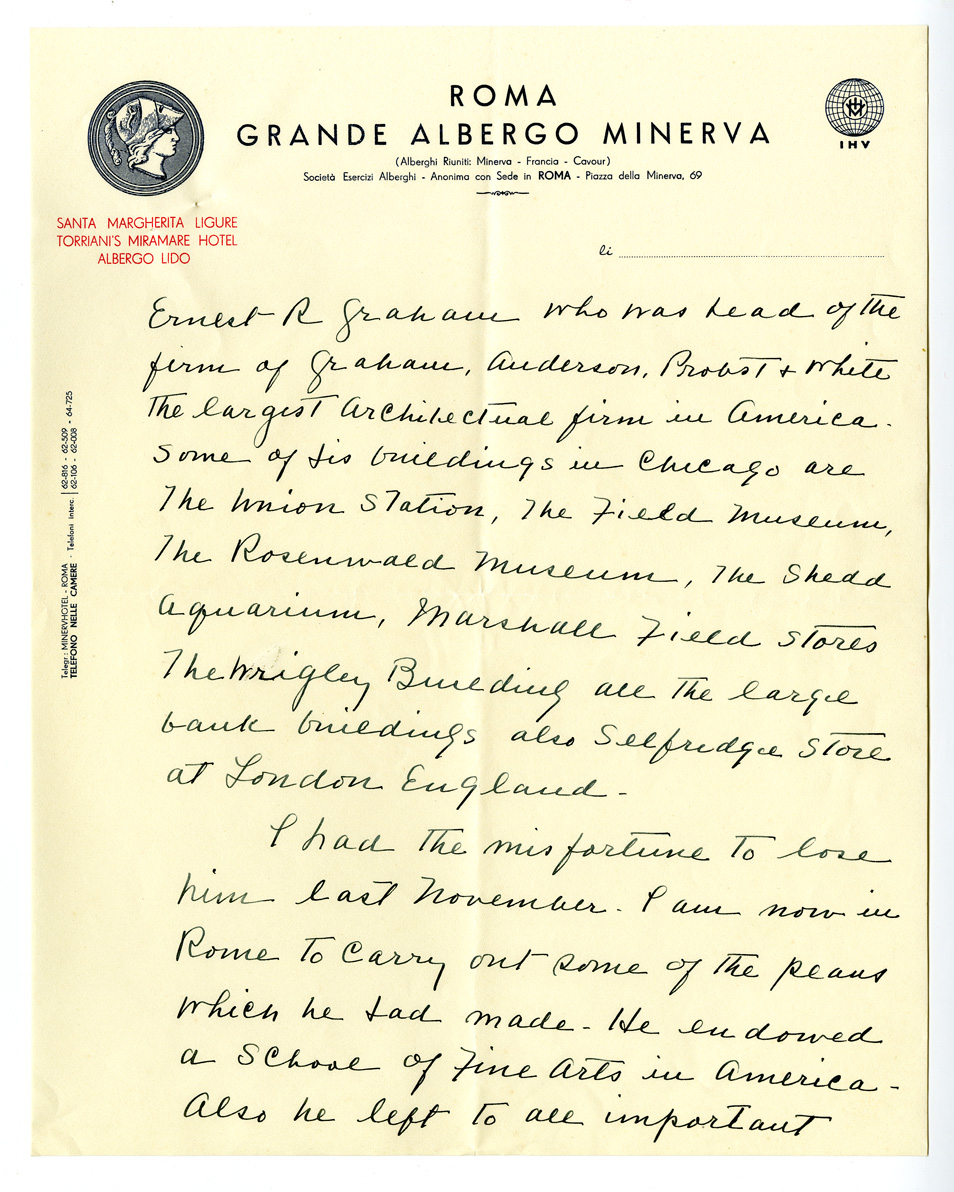 ROMA
GRANDE ALBERGO MINERVA
(Alberghi Riuniti: Minerva - Francia - Cavour)
Società Esercizi Alberghi - Anonima con Sede in ROMA - Piazza della Minerva, 69
IHV
SANTA MARGHERITA LIGURE
TORRIANI'S MIRAMARE HOTEL
ALBERGO LIDO
li
Telegr.: MINERVHOTEL - ROMA
TELEFONO NELLE CAMERE - Telefoni Interc.
62-816 - 62-509 - 64-725
62-106 - 62-008
Ernest R Graham who was head of the
firm of Graham, Anderson, Probst + White
The largest Architectual firm in America.
Some of his buildings in Chicago are
The Union Station, The Field Museum,
The Rosenwald Museum, The Shedd
Aquarium, Marshall Field Stores
The Wrigley Building all the large
bank buildings also Selfridge Store
at London England.
I had the misfortune to lose
him last November. I am now in
Rome to carry out some of the plans
which he had made. He endowed
a School of Fine Arts in America.
Also he left to all important